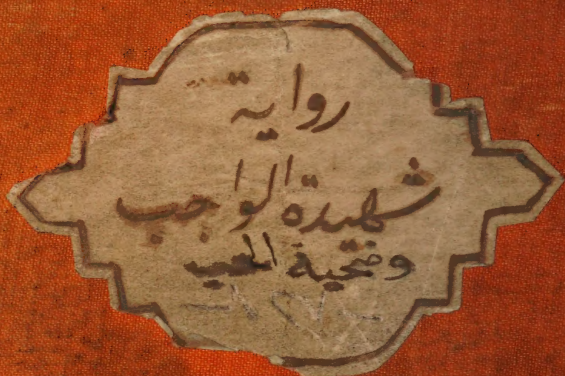 رواية
شهيدة الواجب
وضحية الحب